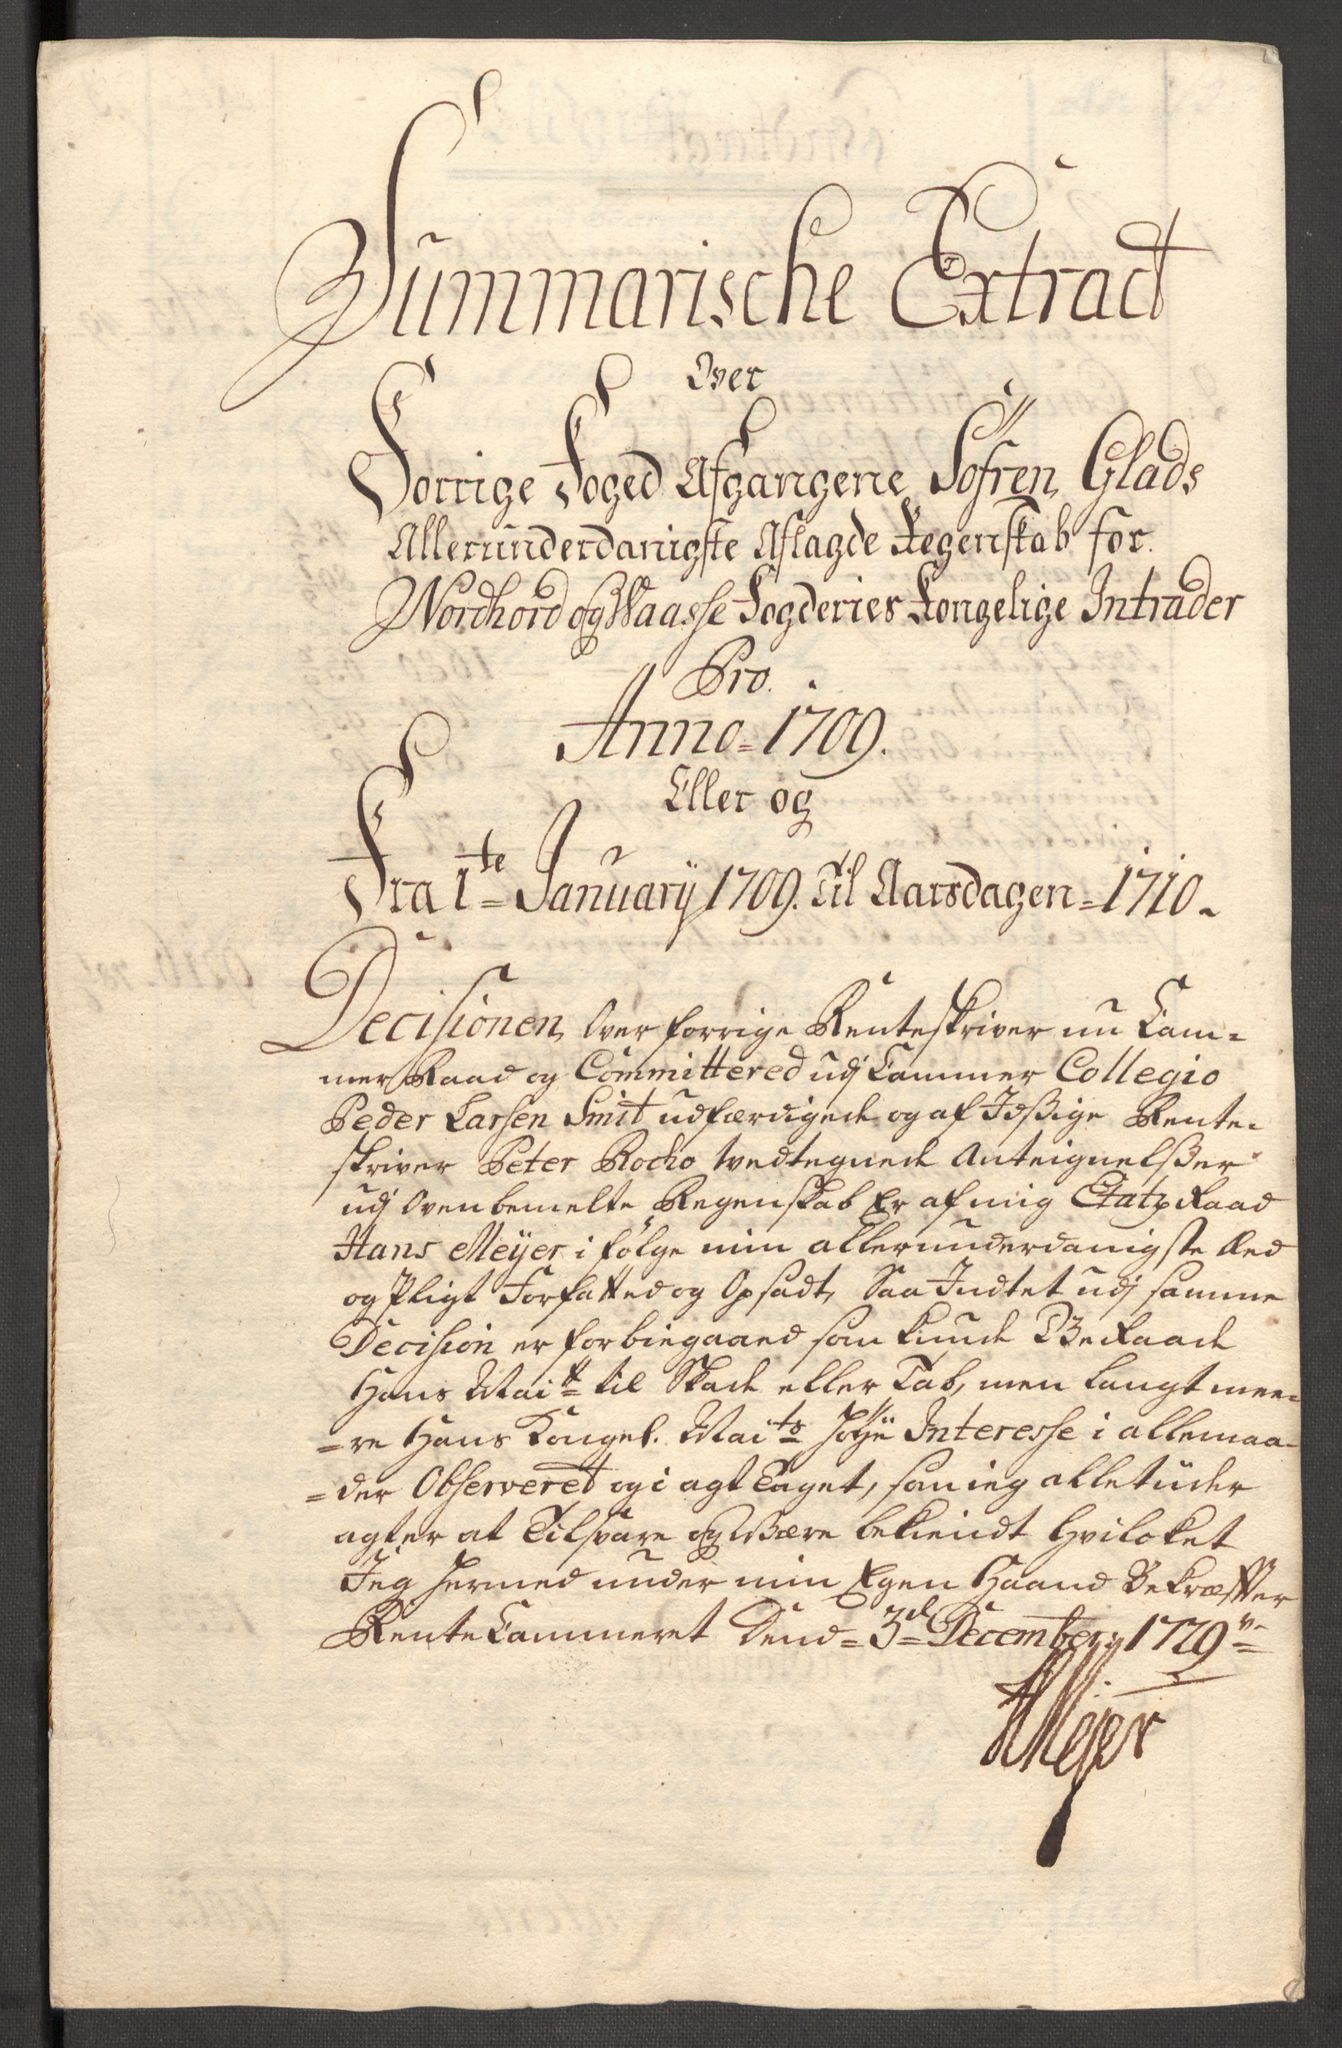 Summarische Extract
Over
Forrige Foged Afgangene Söfren Glads
Allerunderdanigste Aflagde Regenskab for
Nordhord og Waasse Fogderies Kongelige Intrader
Pro
Anno = 1709.
Eller og
Fra 1te January 1709. Til Aarsdagen = 1710 ~
Decisionen, Over forrige Renteskriver nu Cam=
mer Raad og Committered udj Cammer Collegio
Peder Larsen Smit udfærdigede og af Idßige Rente=
skriver Peter Rocho wedtegnede Anteignelßer
udj Ovenbemelte Regenskab Er af mig Etatz Raad
Hans Meÿer i følge min allerunderdanigste Aed
og Pligt Forfatted og Opsadt, Saa Indtet udj samme
Decision er forbiegaaed som kunde Geraade
Hans Maitt til Skade eller Tab, men langt mee=
=re Hans Kongel. Maits Høÿe Interesse i alle maa=
=der Observeret og i agt Taget, som ieg alle tiider
agter at Tilsvare og Være bekiendt Hvilcket
Jeg hermed under min Egen Haand Bekræffter
Rente Cammeret Dend = 3d December 1729
HMeÿer